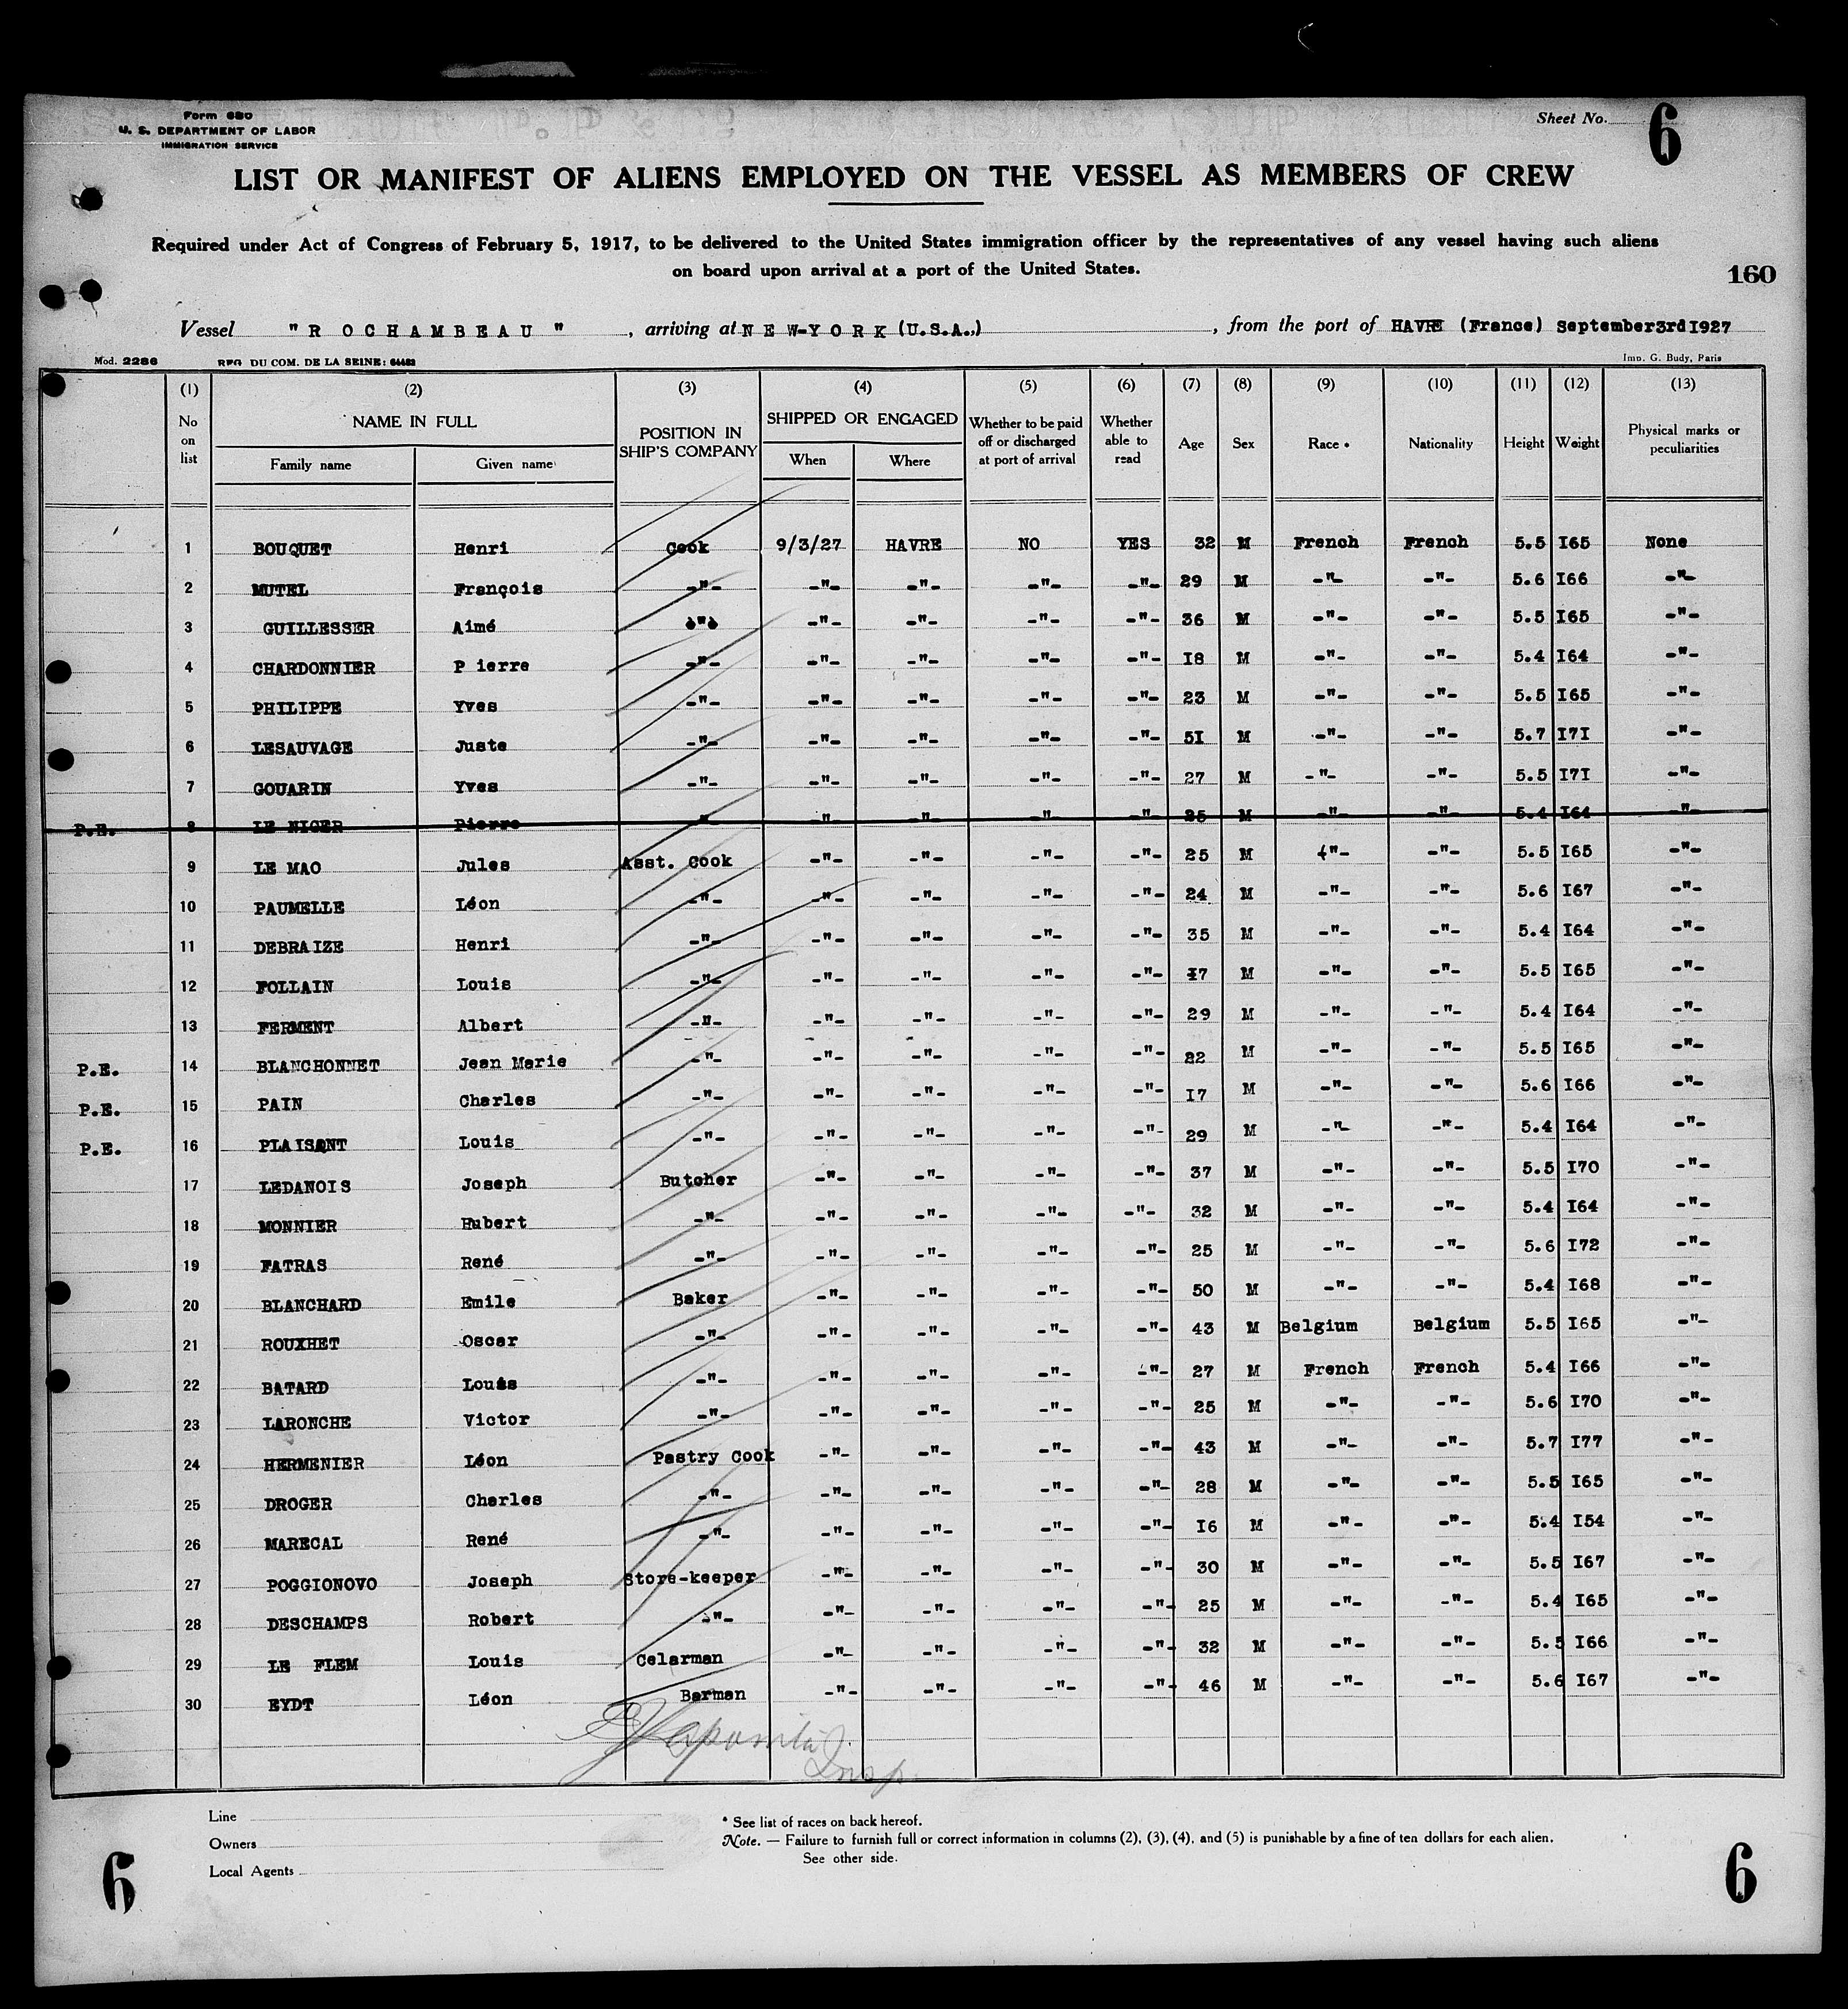 Form 680
U. S. DEPARTMENT OF LABOR
IMMIGRATION SERVICE
Sheet No. 6
LIST OR MANIFEST OF ALIENS EMPLOYED ON THE VESSEL AS MEMBERS OF CREW
Required under Act of Congress of February 5, 1917, to be delivered to the United States immigration officer by the representatives of any vessel having such aliens
on board upon arrival at a port of the United States.
160
Vessel "R OCHAMBEAU", arriving at NEW-YORK (U.S.A.,), from the port of HAVRE (France) September3rdI927
Mod. 2286 REG. DU COM. DE LA SEINE: Imp. G. Budy, Paris
(1) (2) (3) (4) (5) (6) (7) (8) (9) (10) (11) (12) (13)
No on list NAME IN FULL Family name Given name POSITION IN SHIP'S COMPANY SHIPPED OR ENGAGED When Where Whether to be paid off or discharged at port of arrival Whether able to read Age Sex Race * Nationality Height Weight Physical marks or peculiarities
1 BOUQUET Henri Cook 9/3/27 HAVRE NO YES 32 M French French 5.5 I65 None
2 MUTEL François -"- -"- -"- -"- -"- 29 M -"- -"- 5.6 I66 -"-
3 GUILLESSER Aimé -"- -"- -"- -"- -"- 36 M -"- -"- 5.5 I65 -"-
4 CHARDONNIER P ierre -"- -"- -"- -"- -"- I8 M -"- -"- 5.4 I64 -"-
5 PHILIPPE Yves -"- -"- -"- -"- -"- 23 M -"- -"- 5.5 I65 -"-
6 LESAUVAGE Juste -"- -"- -"- -"- -"- 5I M -"- -"- 5.7 I7I -"-
7 GOUARIN Yves -"- -"- -"- -"- -"- 27 M -"- -"- 5.5 I7I -"-
P.E. 8 LE NIGER Pierre -"- -"- -"- -"- -"- 25 M -"- -"- 5.4 I64 -"-
9 LE MAO Jules Asst. Cook -"- -"- -"- -"- 25 M -"- -"- 5.5 I65 -"-
10 PAUMELLE Léon -"- -"- -"- -"- -"- 24 M -"- -"- 5.6 I67 -"-
11 DEBRAIZE Henri -"- -"- -"- -"- -"- 35 M -"- -"- 5.4 I64 -"-
12 FOLLAIN Louis -"- -"- -"- -"- -"- I7 M -"- -"- 5.5 I65 -"-
13 FERMENT Albert -"- -"- -"- -"- -"- 29 M -"- -"- 5.4 I64 -"-
P.E. 14 BLANCHONNET Jean Marie -"- -"- -"- -"- -"- 22 M -"- -"- 5.5 I65 -"-
P.E. 15 PAIN Charles -"- -"- -"- -"- -"- I7 M -"- -"- 5.6 I66 -"-
P.E. 16 PLAISANT Louis -"- -"- -"- -"- -"- 29 M -"- -"- 5.4 I64 -"-
17 LEDANOIS Joseph Butcher -"- -"- -"- -"- 37 M -"- -"- 5.5 I70 -"-
18 MONNIER Hubert -"- -"- -"- -"- -"- 32 M -"- -"- 5.4 I64 -"-
19 FATRAS René -"- -"- -"- -"- -"- 25 M -"- -"- 5.6 I72 -"-
20 BLANCHARD Emile Baker -"- -"- -"- -"- 50 M -"- -"- 5.4 I68 -"-
21 ROUXHET Oscar -"- -"- -"- -"- -"- 43 M Belgium Belgium 5.5 I65 -"-
22 BATARD Louis -"- -"- -"- -"- -"- 27 M French French 5.4 I66 -"-
23 LARONCHE Victor -"- -"- -"- -"- -"- 25 M -"- -"- 5.6 I70 -"-
24 HERMENIER Léon Pastry Cook -"- -"- -"- -"- 43 M -"- -"- 5.7 I77 -"-
25 DROGER Charles -"- -"- -"- -"- -"- 28 M -"- -"- 5.5 I65 -"-
26 MARECAL René -"- -"- -"- -"- -"- I6 M -"- -"- 5.4 I54 -"-
27 POGGIONOVO Joseph Store-keeper -"- -"- -"- -"- 30 M -"- -"- 5.5 I67 -"-
28 DESCHAMPS Robert -"- -"- -"- -"- -"- 25 M -"- -"- 5.4 I65 -"-
29 LE FLEM Louis Celarman -"- -"- -"- -"- 32 M -"- -"- 5.5 I66 -"-
30 EYDT Léon Barman -"- -"- -"- -"- 46 M -"- -"- 5.6 I67 -"-
Insp.
Line
Owners
Local Agents
* See list of races on back hereof.
Note. — Failure to furnish full or correct information in columns (2), (3), (4), and (5) is punishable by a fine of ten dollars for each alien.
See other side.
6 6